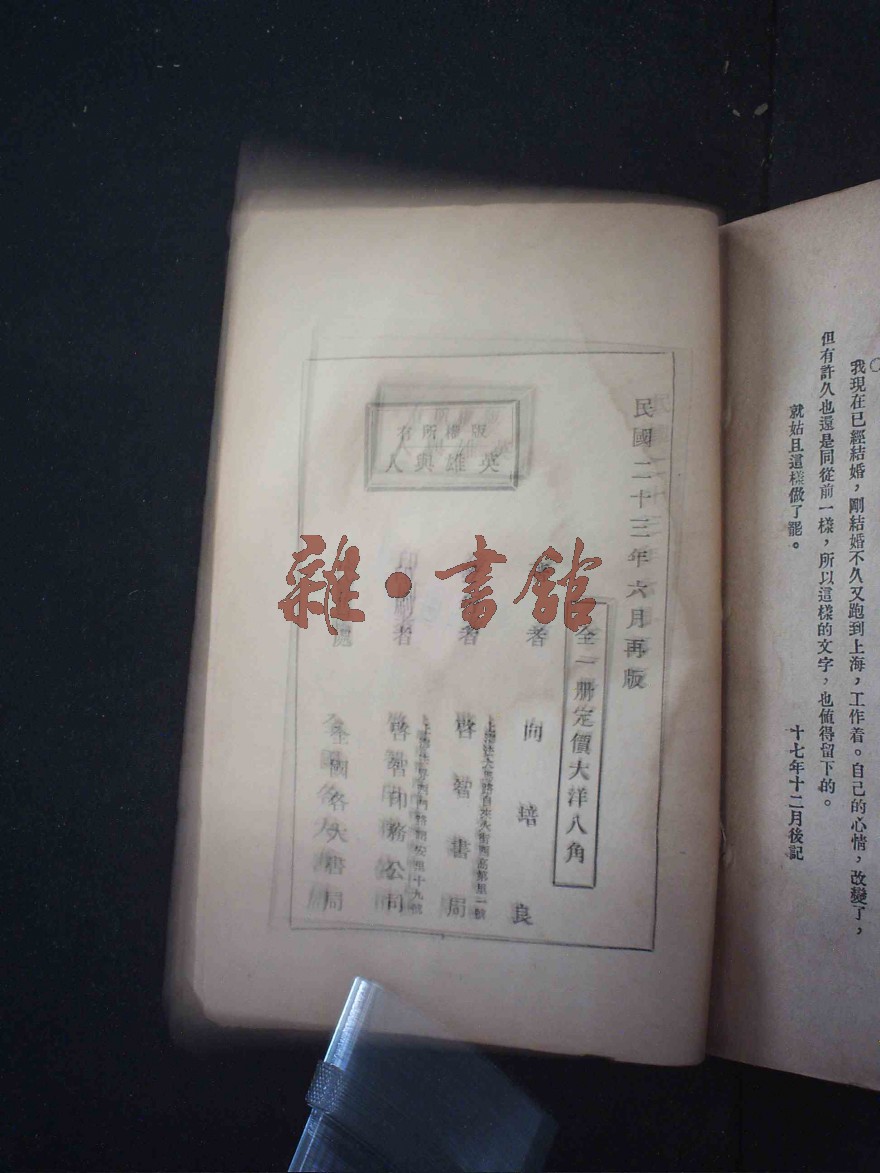 我現在已經結婚，剛結婚不久又跑到上海，工作着。自己的心情，改變了，
但有許久也還是同從前一樣，所以這樣的文字，也值得留下的。
就姑且這樣做了罷。
十七年十二月後記
民國二十三年六月再版
全一册定價大洋八角
著者 向培良
者 啓智書局
印刷者 啓智印務公司
全國各大書局
版權所有
英雄與人
雜·書館